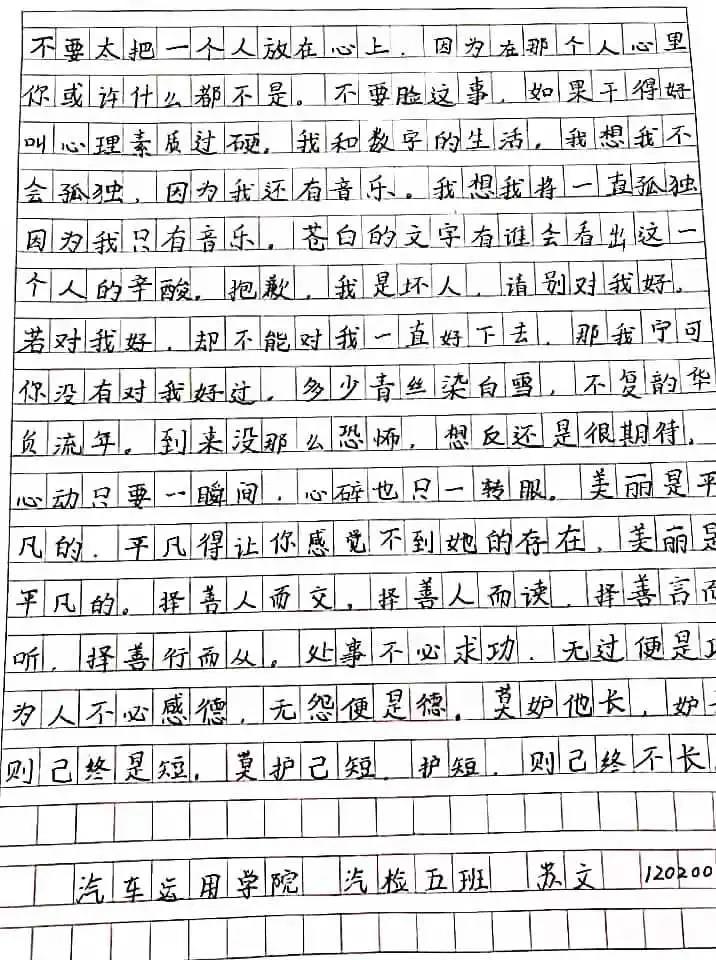 不要太把一个人放在心上，因为在那个人心里
你或许什么都不是。不要脸这事，如果干得好
叫心理素质过硬。我和数字的生活。我想我不
会孤独，因为我还有音乐。我想我将一直孤独
因为我只有音乐。苍白的文字有谁会看出这一
个人的辛酸。抱歉，我是坏人，请别对我好。
若对我好，却不能对我一直好下去，那我宁可
你没有对我好过。多少青丝染白雪，不复韵华
负流年。到来没那么恐怖，想反还是很期待。
心动只要一瞬间，心碎也只一转服。美丽是平
凡的，平凡得让你感觉不到她的存在，美丽是
平凡的。择善人而交，择善人而读，择善言而
听，择善行而从。处事不必求功，无过便是功
为人不必感德，无怨便是德。莫妒他长，妒
则己终是短。莫护己短，护短，则己终不长
汽车运用学院 汽检五班 苏文 120200